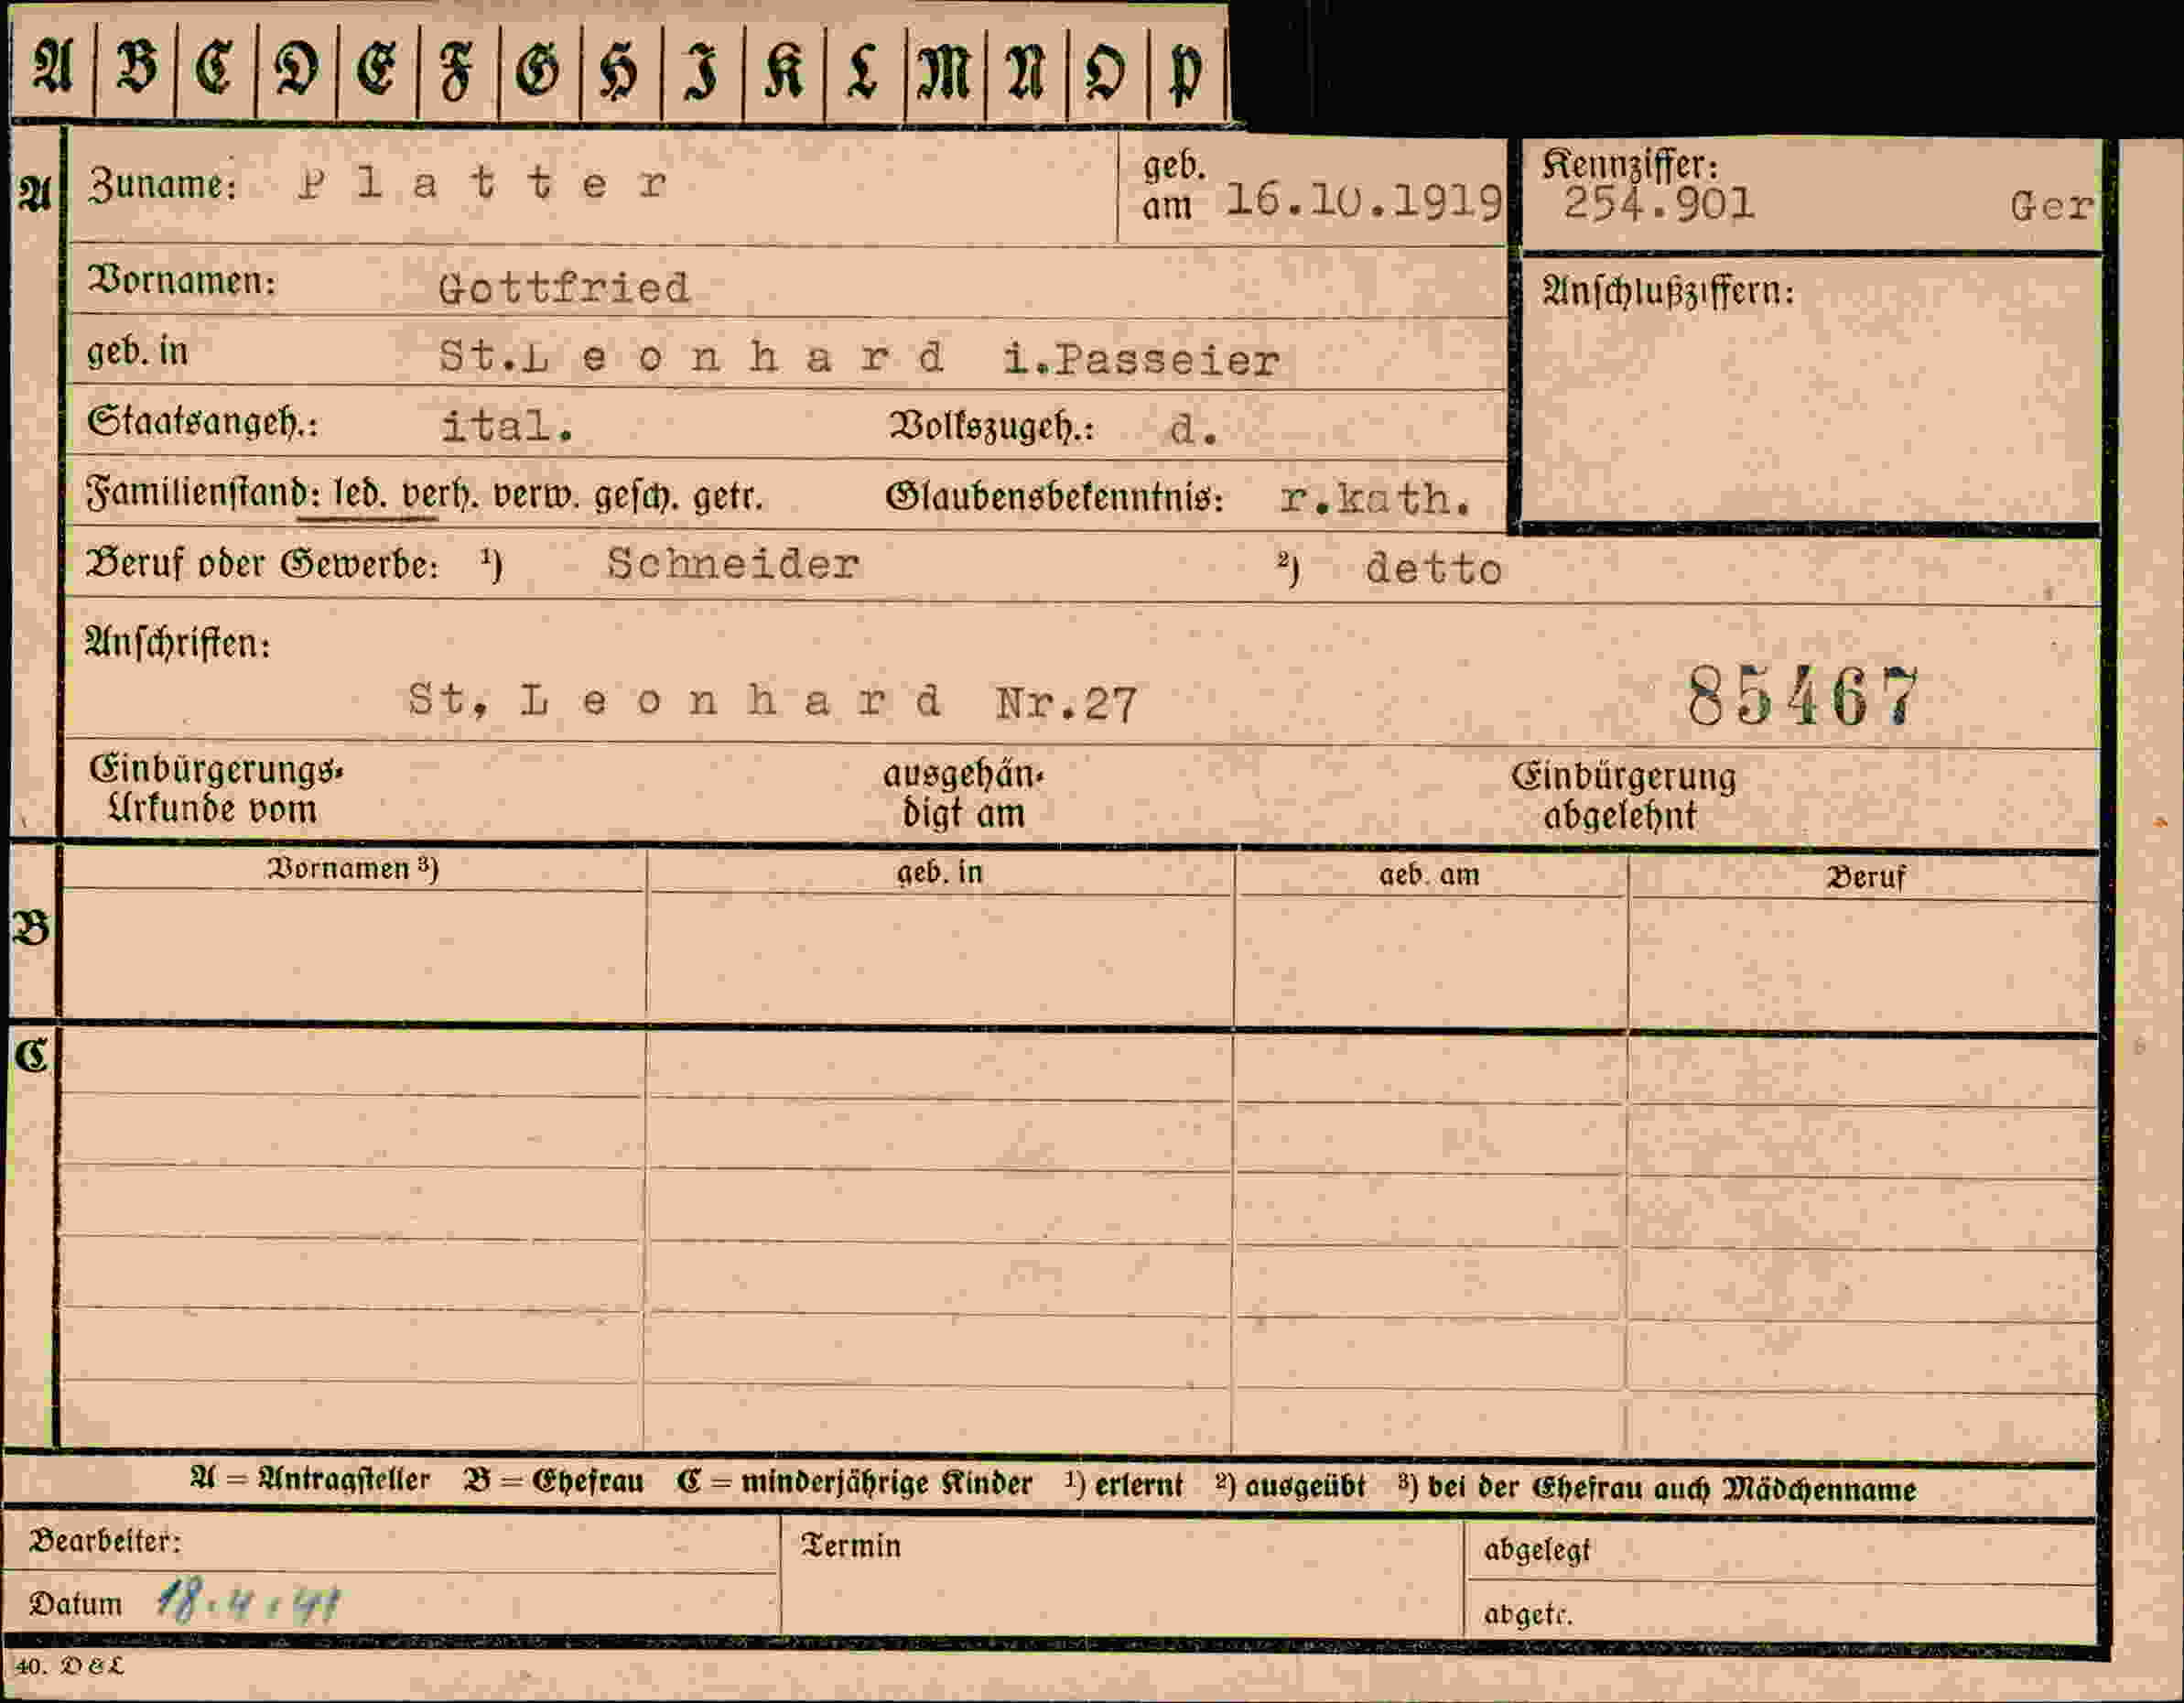 A B C D E F G H I K L M N O P
A Zuname: P l a t t e r geb. am 16.10.1919 Kennziffer: 254.901 Ger
Vornamen: Gottfried Anschlußziffern:
geb. in St.L e o n h a r d i.Passeier
Staatsangeh.: ital. Volkszugeh.: d.
Familienstand: led. verh. verw. gesch. getr. Glaubensbekenntnis: r.kath.
Beruf oder Gewerbe: ¹) Schneider ²) detto
Anschriften:
St, L e o n h a r d Nr.27 85467
Einbürgerungs- ausgehän- Einbürgerung
Urkunde vom digt am abgelehnt
Vornamen ³) geb. in geb. am Beruf
B
C
A = Antragsteller B = Ehefrau C = minderjährige Kinder ¹) erlernt ²) ausgeübt ³) bei der Ehefrau auch Mädchenname
Bearbeiter: Termin abgelegt
Datum 18.4.41 abgetr.
40. D & L